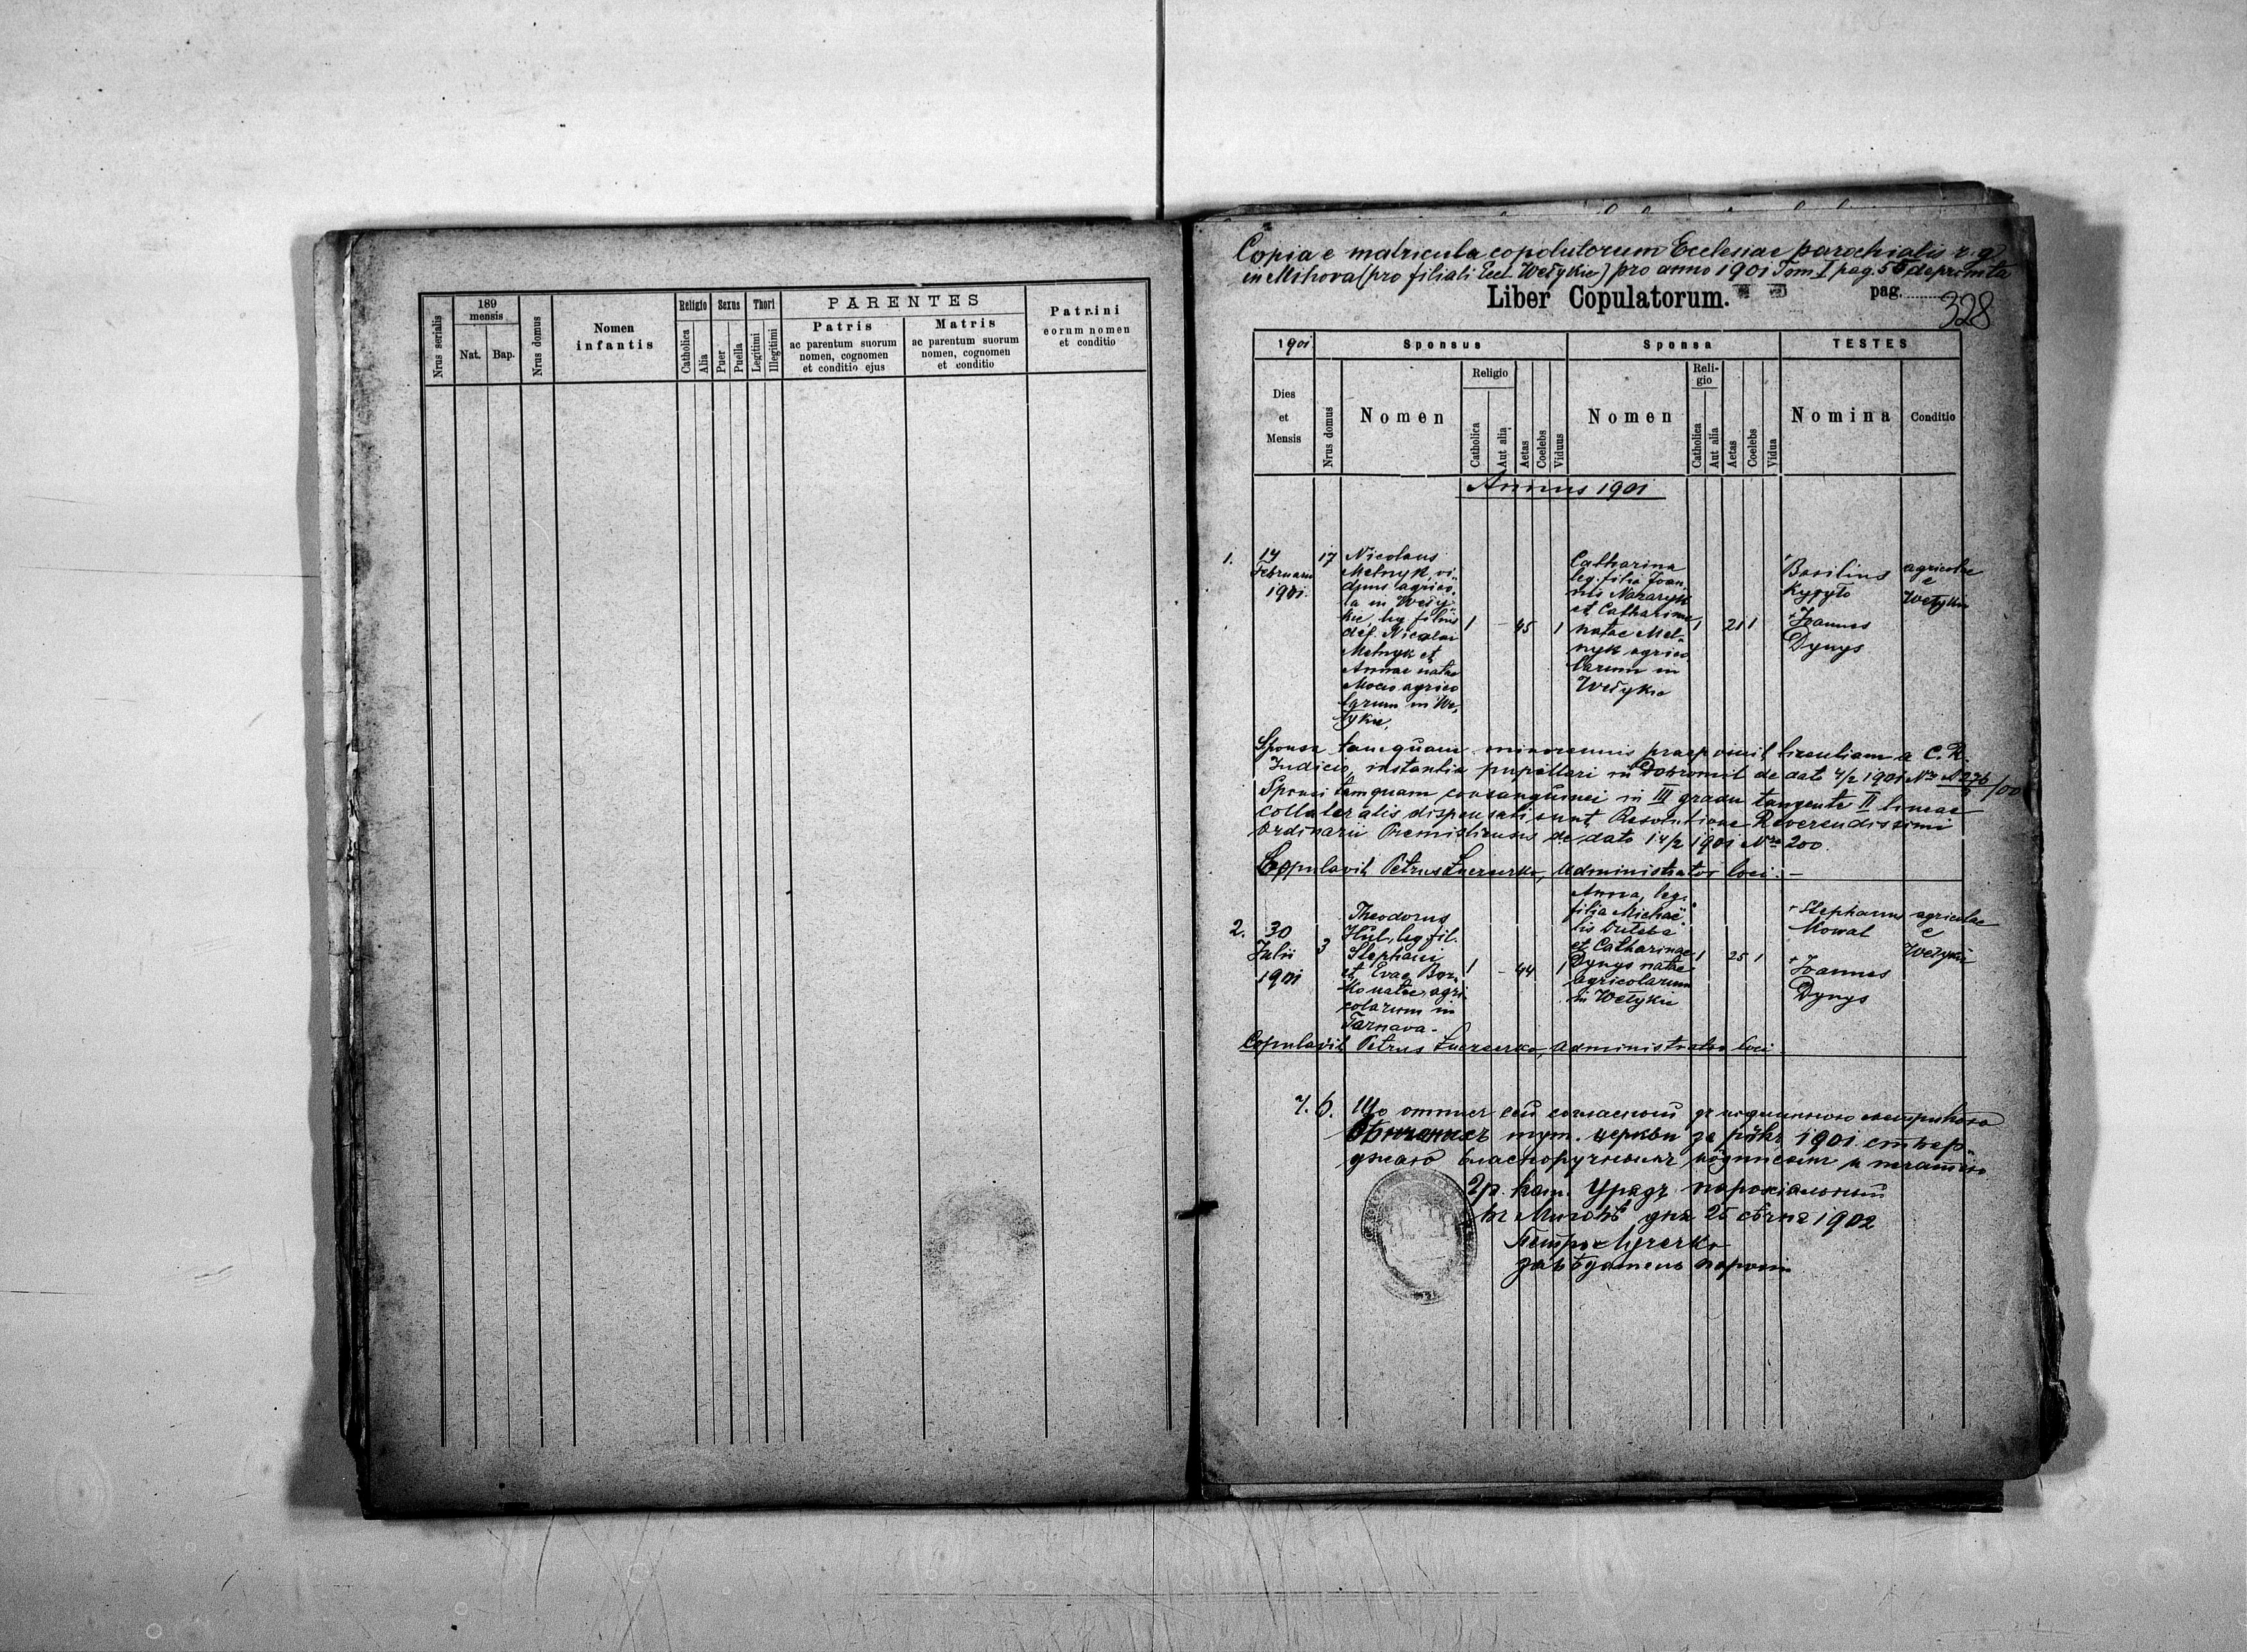 Nrus serialis
189
mensis
Nat.
Bap.
Nrus domus
Nomen
infantis
Religio
Catholica
Alia
Sexus
Puer
Puella
Thori
Legitimi
Illegitimi
PARENTES
Patris
ac parentum suorum
nomen, cognomen
et conditio ejus
Matris
ac parentum suorum
nomen, cognomen
et conditio
Patrini
eorum nomen
et conditio
Copia e matricula copulutorum Ecclesiae parochialis r. g.
in Mihova (pro filiali Eccl. Wełykie) pro anno 1901 Tom I pag. 55 deprompta
Liber Copulatorum.
pag.
328
1901
Sponsus
Sponsa
TESTES
Dies
et
Mensis
Nrus domus
Nomen
Religio
Catholica
Aut alia
Aetas
Coelebs
Viduus
Nomen
Reli-
gio
Catholica
Aut alia
Aetas
Coelebs
Vidua
Nomina
Conditio
Annus 1901
1.
14
Februarii
1901.
17
Nicolaus
Melnyk, vi-
duus agrico-
la in Weły-
kie, leg. filius
def. Nicolai
Melnyk et
Annae natae
Mocio agrico
larum in We-
łykie.
1 - 45 1
Catharina
leg. filia Joan-
nis Nazaryk
et Catharinae
natae Mel-
nyk agrico
larum in
Wełykie
1 21 1
+Basilius
Kyryło
+Joannes
Dynys
agricolae
e
Wełykie
Sponsa tamquam minorennis praeponuit licentiam a C. R.
Judicio, instantia pupillari in Dobromil de dato 4/2 1901 Nro
Sponsi tamquam consanguinei in III gradu tangente II lineae
collateralis dispensati sunt Resolutione Reverendissimi
Ordinarii Premisliensis de dato 14/2 1901 Nro 200.
Copulavit Petrus administrator loci. -
2.
30
Julii
1901
3
Theodorus
Hul, leg. fil.
Stephani
et Evae
natae agri
colarum in
Tarnava.
1 - 44 1
Anna, leg.
filia Michaë
lis
et Catharinae
Dynys natae
agricolarum
in Wełykie
1 25 1
+Stephanus
Kowal
+Joannes
Dynys
agricolae
e
Wełykie
Copulavit Petrus administrator loci
Ч. 6. Що отпись сей согласный зъ подлинною метрикою
тут. церкви за рôкъ 1901 ствер-
джаю власноручнымъ пôдписомъ и печатію
Гр. кат. Урядъ парохіальный
въ Миговѣ дня 25 сѣчня 1902
Петро
завѣдатель парохіи